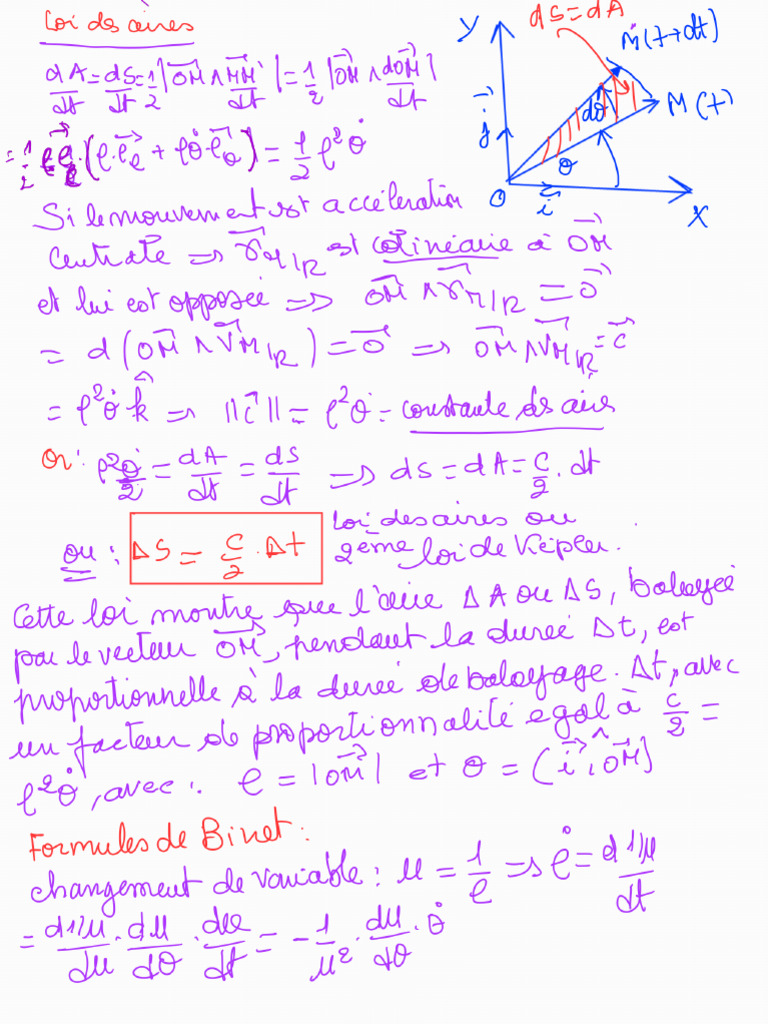 Loi des aires
dS = dA
Y
M(t+dt)
dA/dt = dS/dt = 1/2 |OM⃗ ∧ MM'⃗/dt| = 1/2 |OM⃗ ∧ dOM⃗/dt|
M(t)
dθ
j⃗
θ
O
i⃗
X
= 1/2 ρe⃗ρ (ρ̇·e⃗ρ + ρθ̇·e⃗θ) = 1/2 ρ²θ̇
Si le mouvement est accélération
centrale ⇒ γ⃗M/R est colinéaire à OM⃗
et lui est opposée ⇒ OM⃗ ∧ γ⃗M/R = 0⃗
= d(OM⃗ ∧ V⃗M/R) = 0⃗ ⇒ OM⃗ ∧ V⃗M/R = c⃗
= ρ²θ̇ k̂ ⇒ ||c⃗|| = ρ²θ̇ = constante des aires
Or: ρ²θ̇/2 = dA/dt = dS/dt ⇒ dS = dA = C/2 · dt
ou : ΔS = C/2 · Δt
Loi des aires ou
2ème loi de Képler.
Cette loi montre que l'aire ΔA ou ΔS, balayée
par le vecteur OM⃗, pendant la durée Δt, est
proportionnelle à la durée de balayage. Δt, avec
un facteur de proportionnalité egal à C/2 =
ρ²θ̇, avec: ρ = |OM⃗| et θ = (i⃗, OM⃗)
Formules de Binet :
changement de variable : u = 1/ρ ⇒ ρ̇ = d 1/u / dt
= d1/u/du · du/dθ · dθ/dt = - 1/u² · du/dθ · θ̇